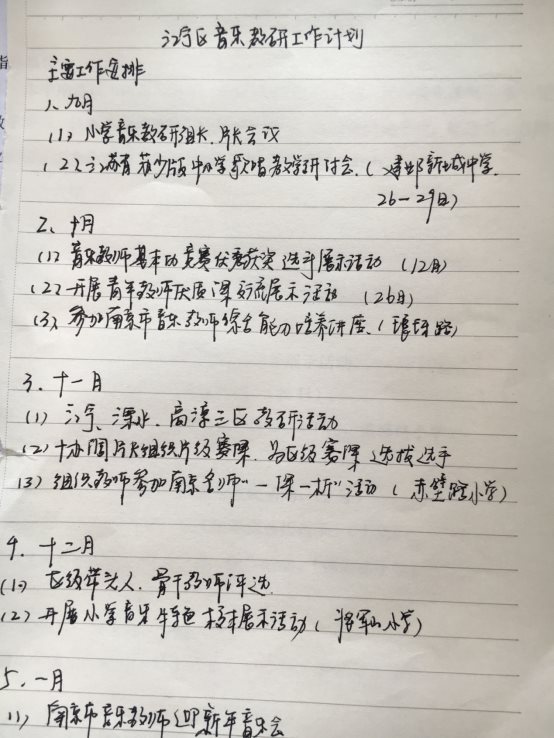 江宁区音乐教研工作计划
主要工作安排
1、九月
(1) 小学音乐教研组长、片长会议
(2) 江苏省苏少版中小学歌唱教学研讨会.(建邺新城中学.
26—29日)
2、十月
(1) 音乐教师基本功竞赛优秀获奖选手展示活动 (12日)
(2) 开展青年教师优质课交流展示活动 (26日)
(3) 参加南京市音乐教师综合能力培养讲座.(琅琊路)
3、十一月
(1) 江宁、溧水、高淳三区教研活动
(2) 十办园片长组织片级赛课.为区级赛课选拔选手
(3) 组织教师参加南京名师"一课一析"活动(赤壁路小学)
4、十二月
(1) 区级带头人、骨干教师评选
(2) 开展小学音乐特色校本展示活动(将军山小学)
5、一月
(1) 南京市音乐教师迎新年音乐会